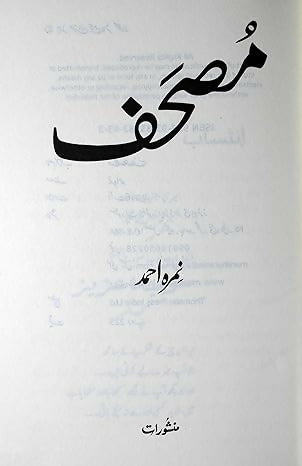 مُصحَف
نمرہ احمد
منشورات